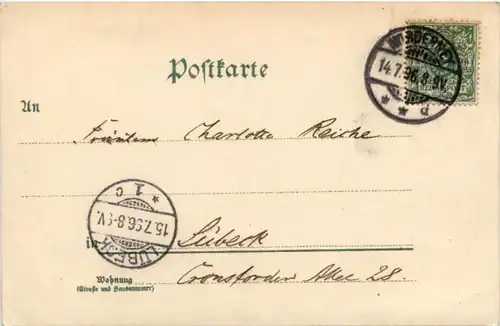 NORDERNEY
14.7.96.8-9V.
Postkarte
An
Fräulein Charlotte Reiche
LÜBECK
15.7.96.8-9V.
1. c
in Lübeck
Cronsforder Allee 28.
Wohnung
(Straße und Hausnummer)